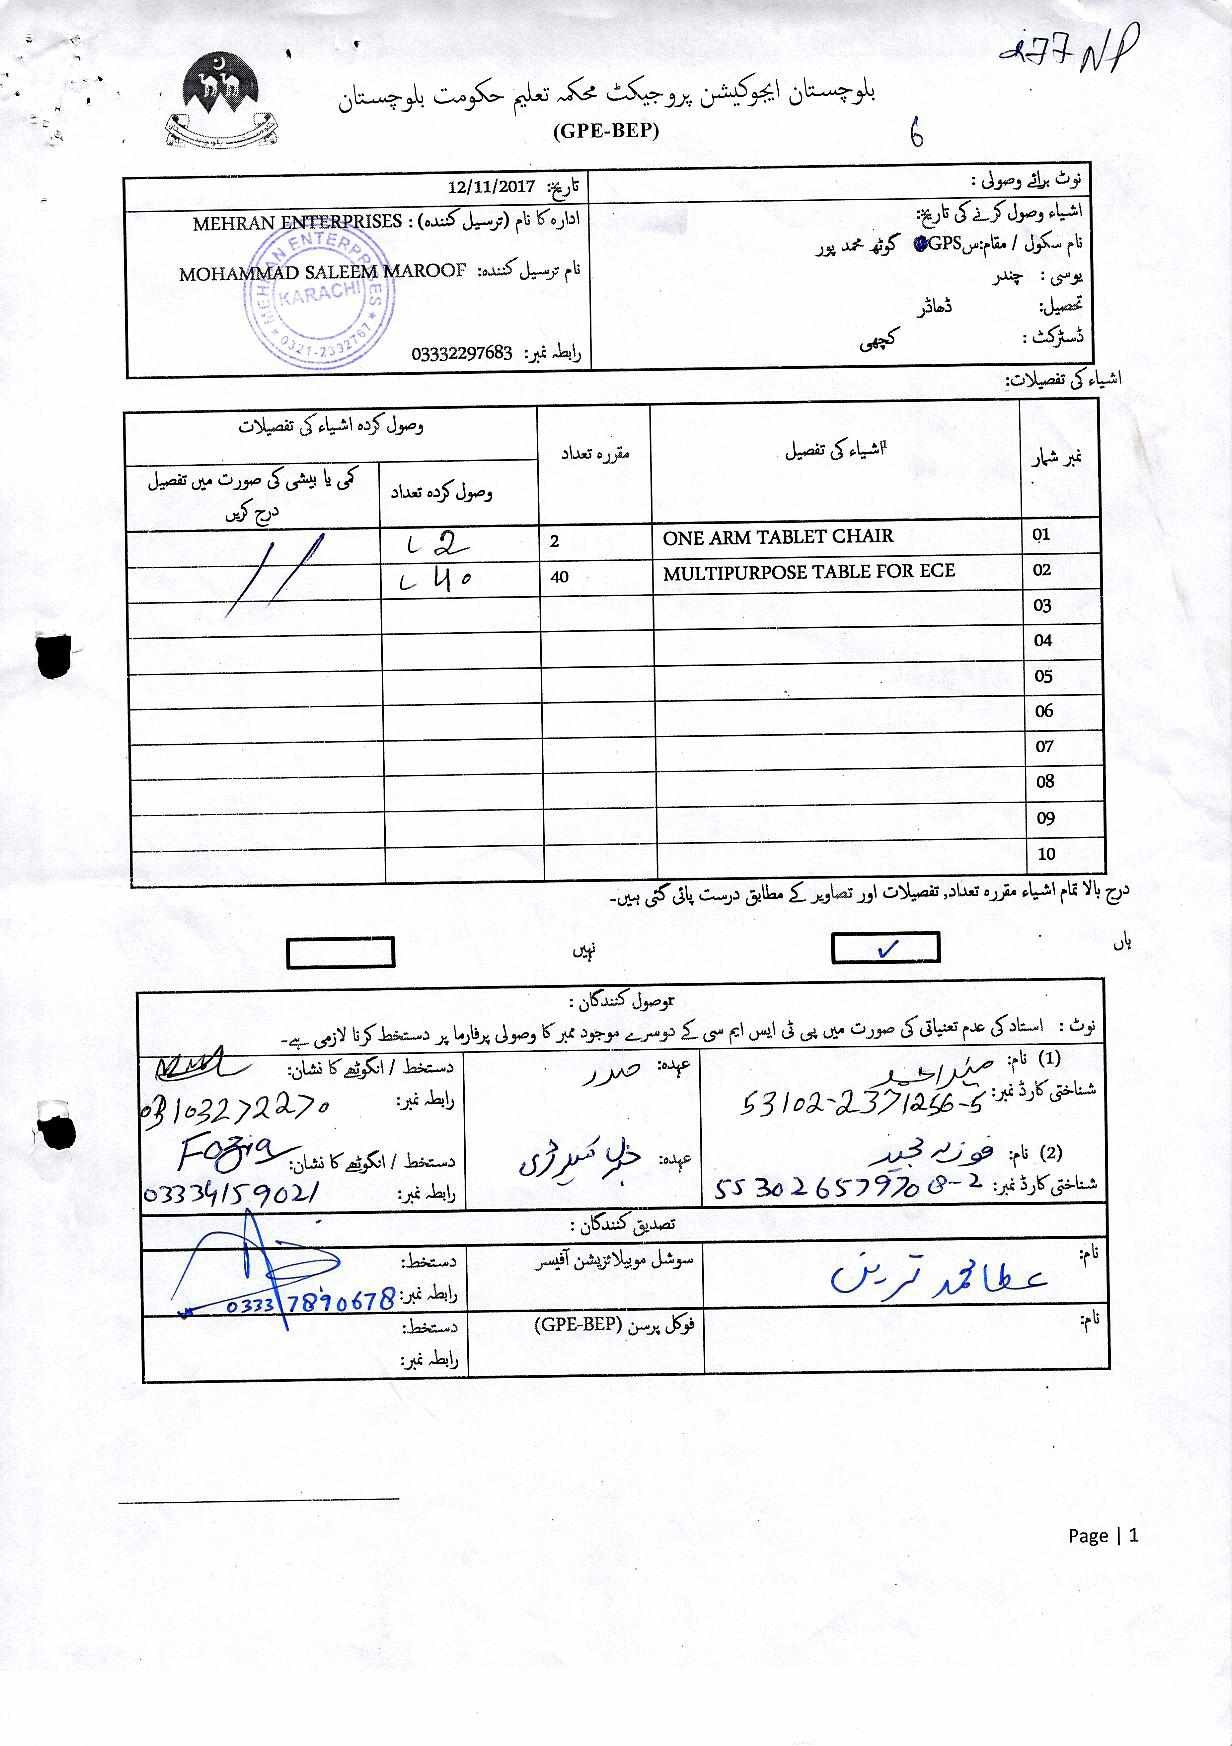 277 NP
بلوچستان ایجوکیشن پروجیکٹ محکمہ تعلیم حکومت بلوچستان
(GPE-BEP)
6
نوٹ برائے وصولی :
اشیاء وصول کرنے کی تاریخ:
نام سکول / مقام: GPS گوٹھ محمد پور
یوسی : چندر
تحصیل: ڈھاڈر
ڈسٹرکٹ : کچھی
تاریخ: 12/11/2017
ادارہ کا نام (ترسیل کنندہ) : MEHRAN ENTERPRISES
نام ترسیل کنندہ: MOHAMMAD SALEEM MAROOF
رابطہ نمبر: 03332297683
MEHRAN ENTERPRISES
KARACHI
0321-2332767
اشیاء کی تفصیلات:
نمبر شمار اشیاء کی تفصیل مقررہ تعداد وصول کردہ اشیاء کی تفصیلات
وصول کردہ تعداد کمی یا بیشی کی صورت میں تفصیل درج کریں
01 ONE ARM TABLET CHAIR 2 2
02 MULTIPURPOSE TABLE FOR ECE 40 40
03
04
05
06
07
08
09
10
درج بالا تمام اشیاء مقررہ تعداد, تفصیلات اور تصاویر کے مطابق درست پائی گئی ہیں۔
ہاں ✓ نہیں
وصول کنندگان :
نوٹ : استاد کی عدم تعنیاتی کی صورت میں پی ٹی ایس ایم سی کے دوسرے موجود ممبر کا وصولی پرفارما پر دستخط کرنا لازمی ہے۔
(1) نام: عہدہ: صدر دستخط / انگوٹھے کا نشان:
شناختی کارڈ نمبر: 53102-2371256-5 رابطہ نمبر: 03103272270
(2) نام: فوزیہ مجید عہدہ: دستخط / انگوٹھے کا نشان: Fozia
شناختی کارڈ نمبر: 553026579708-2 رابطہ نمبر: 03334159021
تصدیق کنندگان :
نام: عطا محمد ترین سوشل موبیلائزیشن آفیسر دستخط:
رابطہ نمبر: 03337890678
نام: فوکل پرسن (GPE-BEP) دستخط:
رابطہ نمبر:
Page | 1